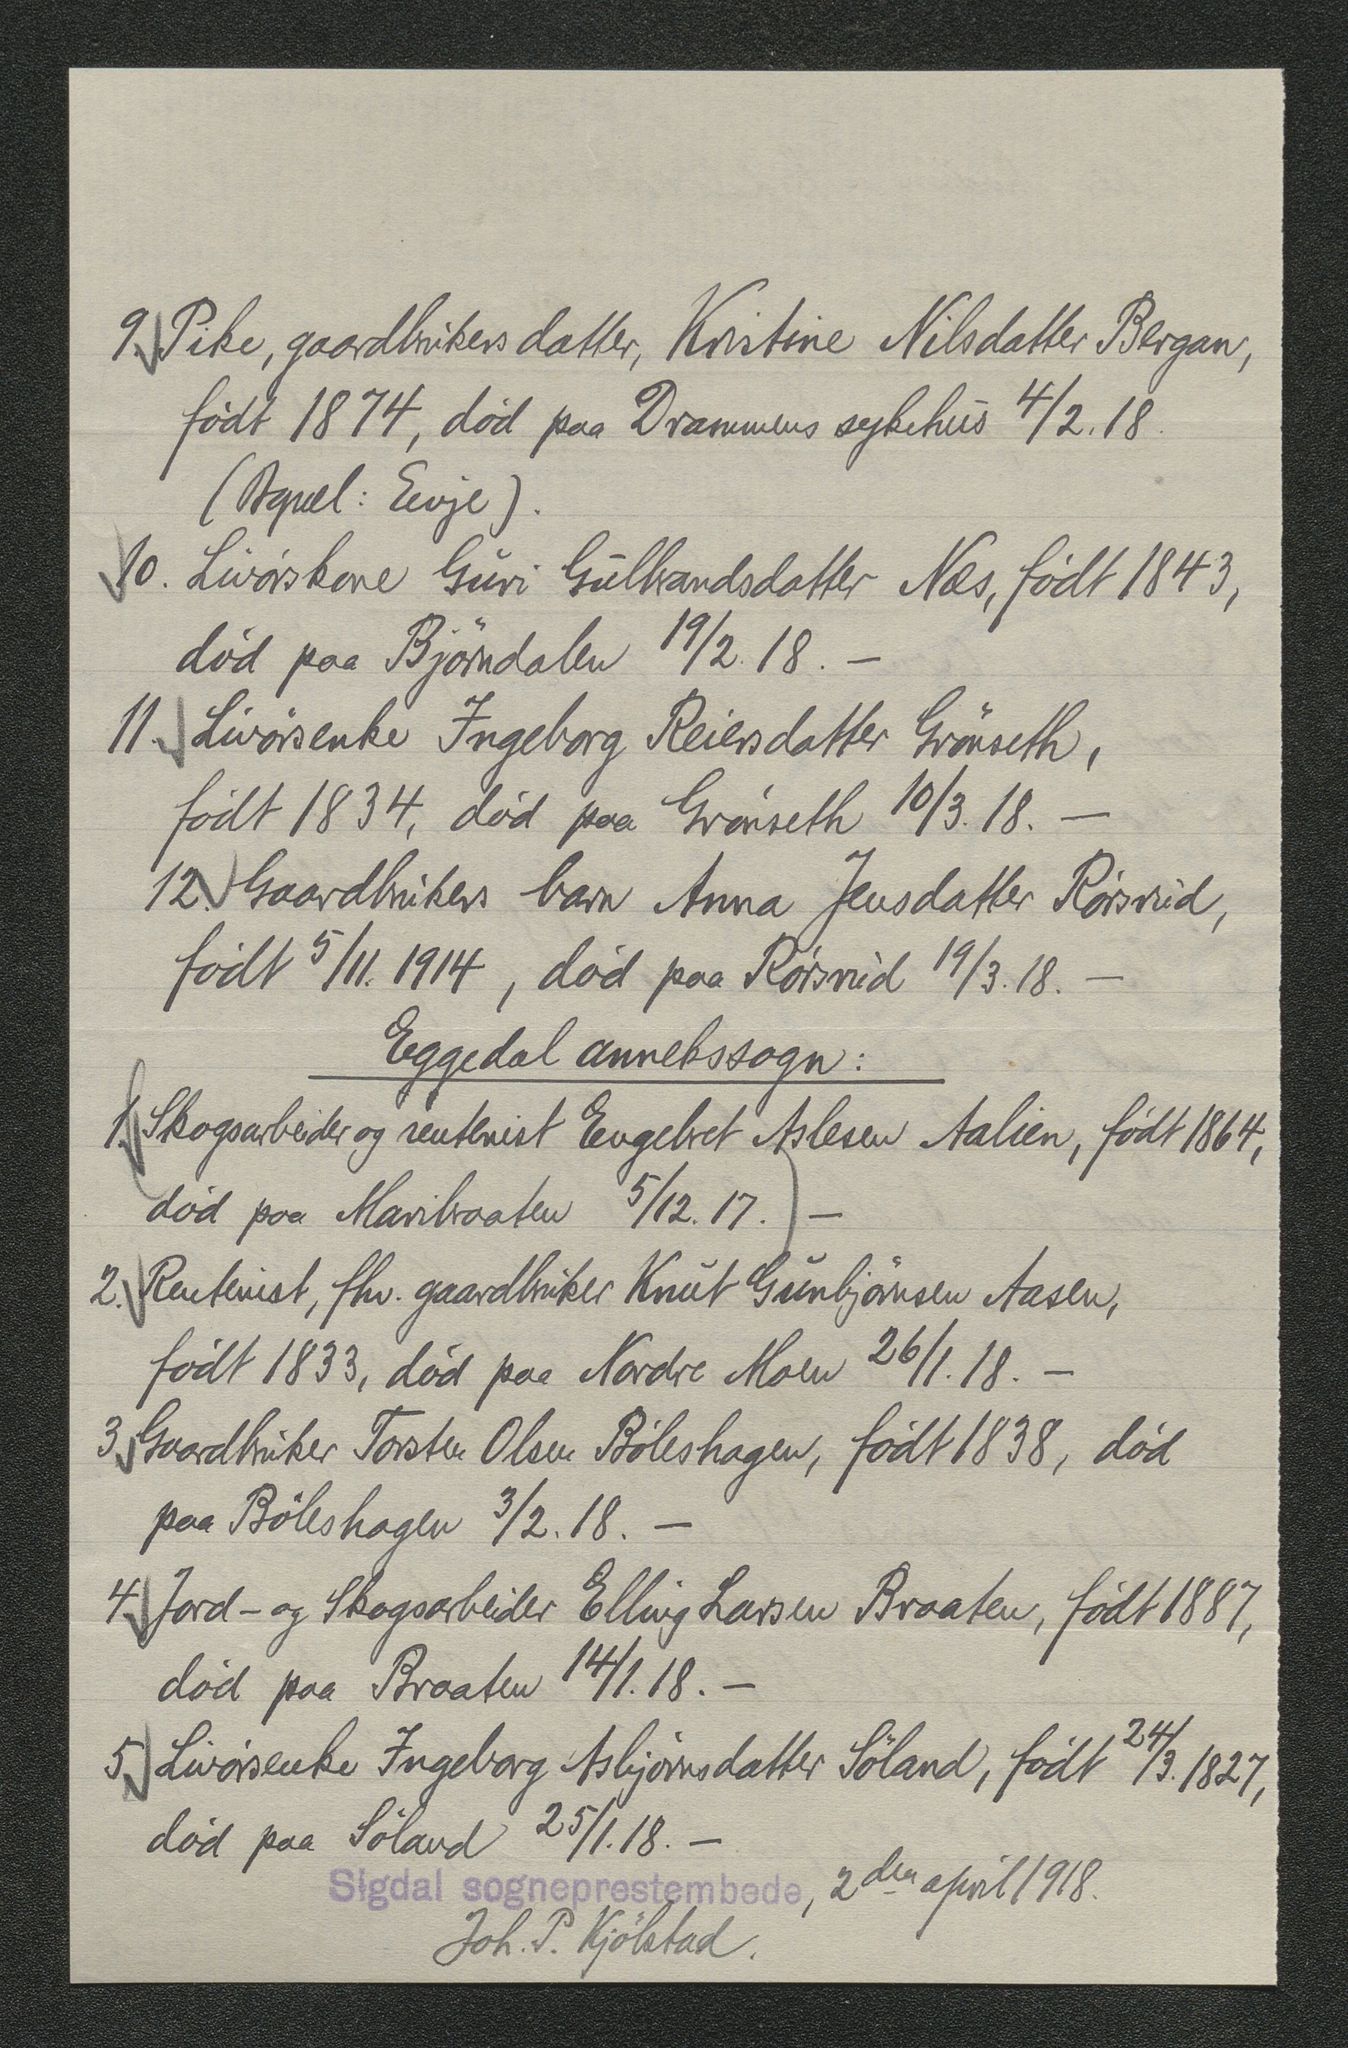 9. Pike, gaardbrukersdatter, Kristine Nilsdatter Bergan,
födt 1874, död paa Drammens sykehus 4/2.18.
: Eevje).
10. Livörskone Guri Gulbrandsdatter Næs, födt 1843,
död paa Björndalen 19/2.18. —
11. Livörsenke Ingeborg Reiersdatter Grönseth,
födt 1834, död paa Grönseth 10/3.18. —
12. Gaardbrukers barn Anna Jensdatter Rörsrud,
födt 5/11.1914, död paa Rörsrud 19/3.18. —
Eggedal annekssogn:
1. Skogsarbeider og rentenist Engebret Aslesen Aalien, födt 1864,
död paa Maribraaten 5/12.17. —
2. Rentenist, fhv. gaardbruker Knut Gunbjörnsen Aasen,
födt 1833, död paa Nordre Moen 26/1.18. —
3. Gaardbruker Torsten Olsen Böleshagen, födt 1838, död
paa Böleshagen 3/2.18. —
4. Jord- og Skogsarbeider Elling Larsen Braaten, födt 1887,
död paa Braaten 14/1.18. —
5. Livörsenke Ingeborg Asbjörnsdatter Söland, födt 24/3.1827,
död paa Söland 25/1.18. —
Sigdal sogneprestembede, 2den april 1918.
Joh. P. Kjölstad.